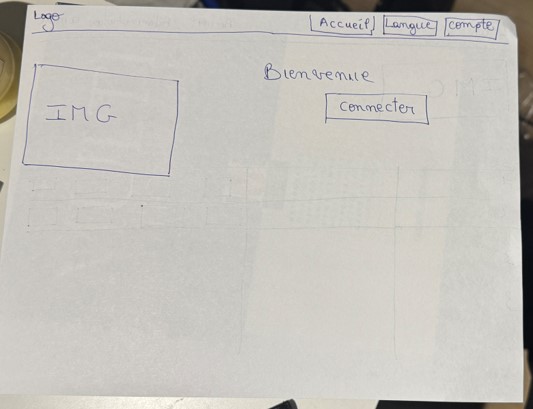 Logo
Accueil Langue compte
Bienvenue
connecter
IMG